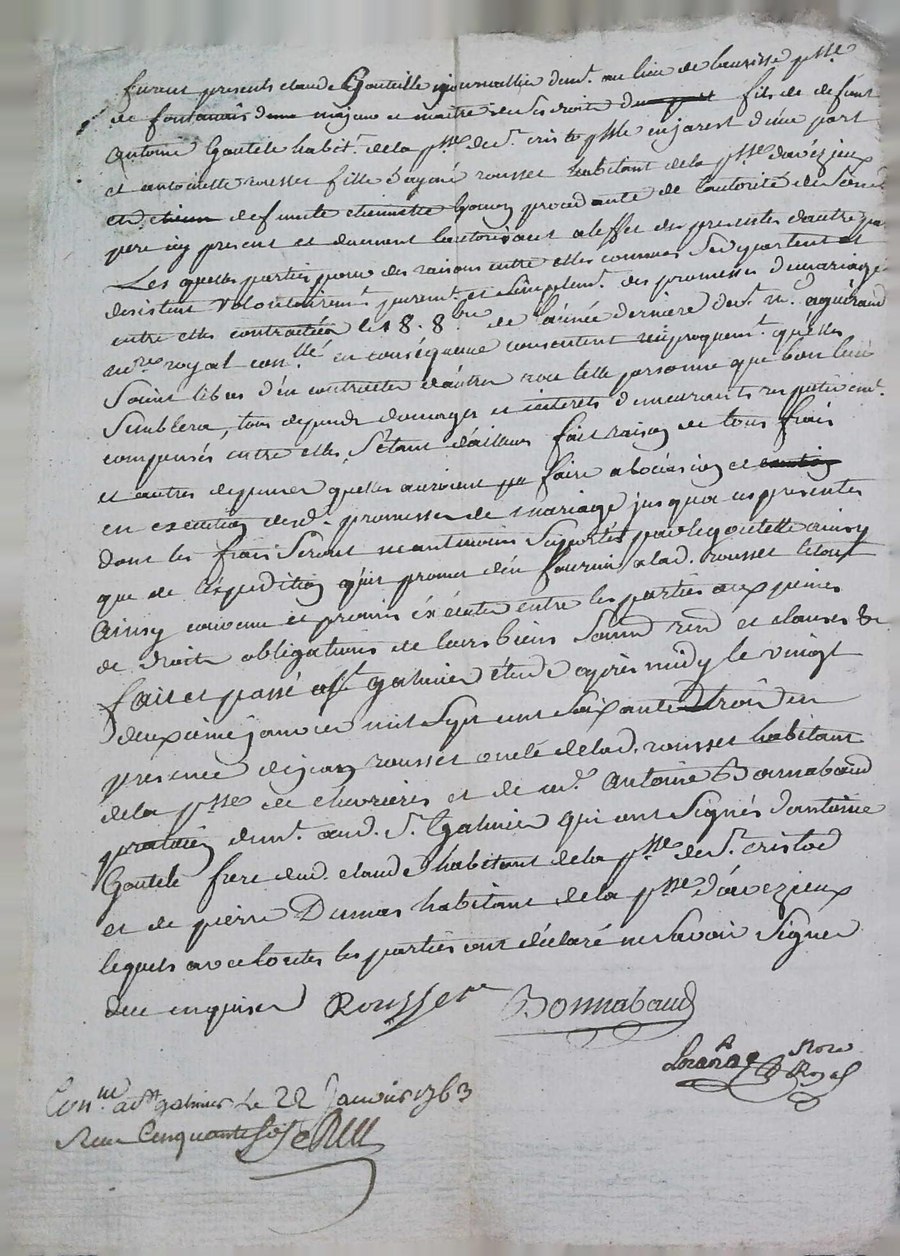 furent presents claude Gouttelle journallier demt. au lieu de lauzisse psse
de fontanais majeur et maitre de ses droits fils de defunt
Antoine Goutele habitt. de la psse de st. cristo psse en jarest d'une part
et antoinette rousset fille d'aymé rousset habitant de la psse d'avezjeux
et defunte procedante de l'autorité de son d.
pere icy present et duement l'autorisant a leffet des presentes d'autre pa
Les quelles parties pour des raisons entre elles connues se departent et
desistent volontairemt. puremt. et simplemt. des promesses de mariage
entre elles contractées le 8. 8bre de l'année derniere devt. me.
nore royal conllé en conséquence consentent reciproquemt. qu'elles
soient libres d'en contracter d'autres avec telle personne que bon leur
semblera, tous depends domages et interets demeurants respectivemt.
compensés entre elles, s'etant d'ailleurs fait raison de tous frais
et autres depenses quelles auroient pu faire a locasion et
en execution desd. promesses de mariage jusqu'a ces presentes
dont les frais seront neantmoins suportés par le goutelle ainsy
que de l'expedition qu'il promet d'en fournir a lad. rousset le tout
ainsy convenu et promis éxécuter entre les parties aux peines
de droit obligations de leurs biens soumd rend et clauses &
fait et passé a st galmier étude après midy le vingt
deuxième janvier mil sept cent soixante trois en
presence de jean rousset oncle de lad. rousset habitant
de la psse de chevrieres et de me. Antoine Bonnabaud
praticien demt. aud. st. Galmier qui ont signés d'antoine
Goutele frere dud. claude habitant de la psse de st. cristo
et de pierre Dumas habitant de la psse d'avezjeux
lequels avec toutes les parties ont déclaré ne savoir signer
de ce enquises Rousset Bonnabaud
Nore Royal
Conlle a st galmier Le 22 Janvier 1763
Reçu Cinquante sols